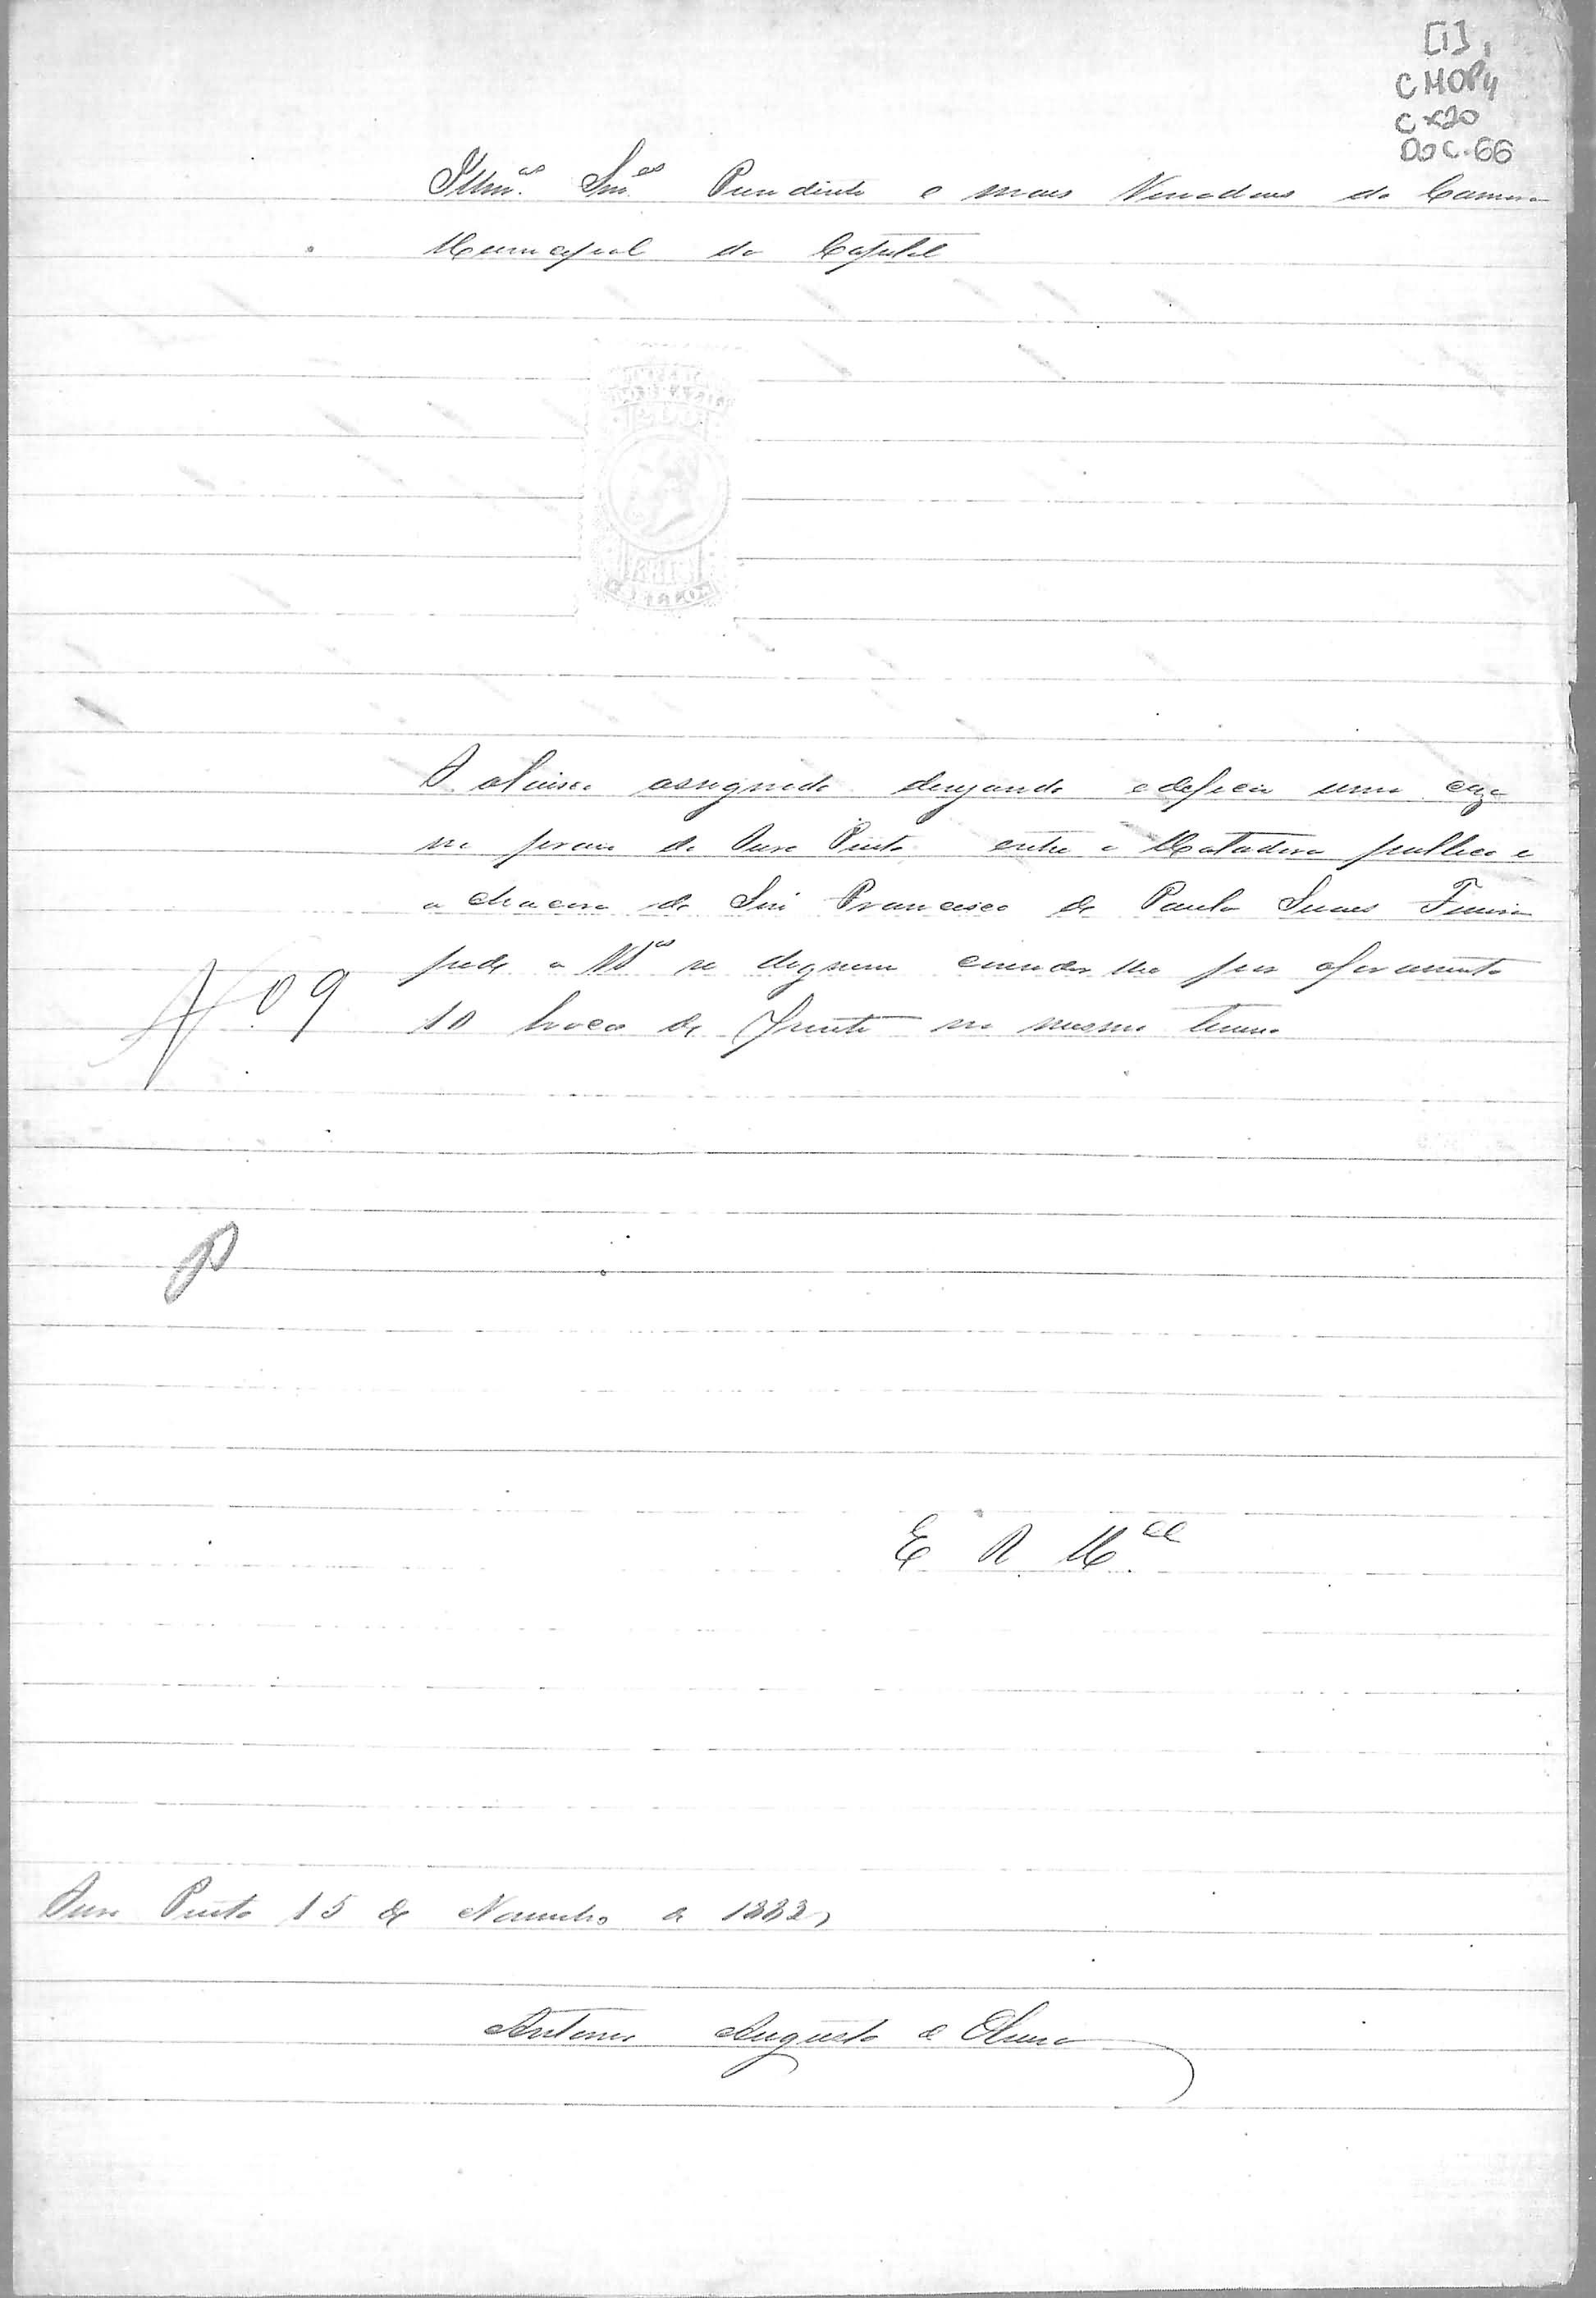 [1]
CMOP4
CX20
DOC. 66
Illmos Snres Presidente e mais Vereadores da Camara
Municipal da Capital
IMPERIO
DO BRAZIL
200
RÉIS
O abaixo assignado desejando edeficar uma caza
no   de Ouro Preto entre o Matadouro publico e
a chacara do Snr Francisco de Paula   Ferreira
pede a VSas se dignem conceder lhe por aforamento
10 braças de frente no mesmo terreno
No 9
P
E R Mce
Ouro Preto 15 de Novembro de 1883
Antonio Augusto de Oliveira